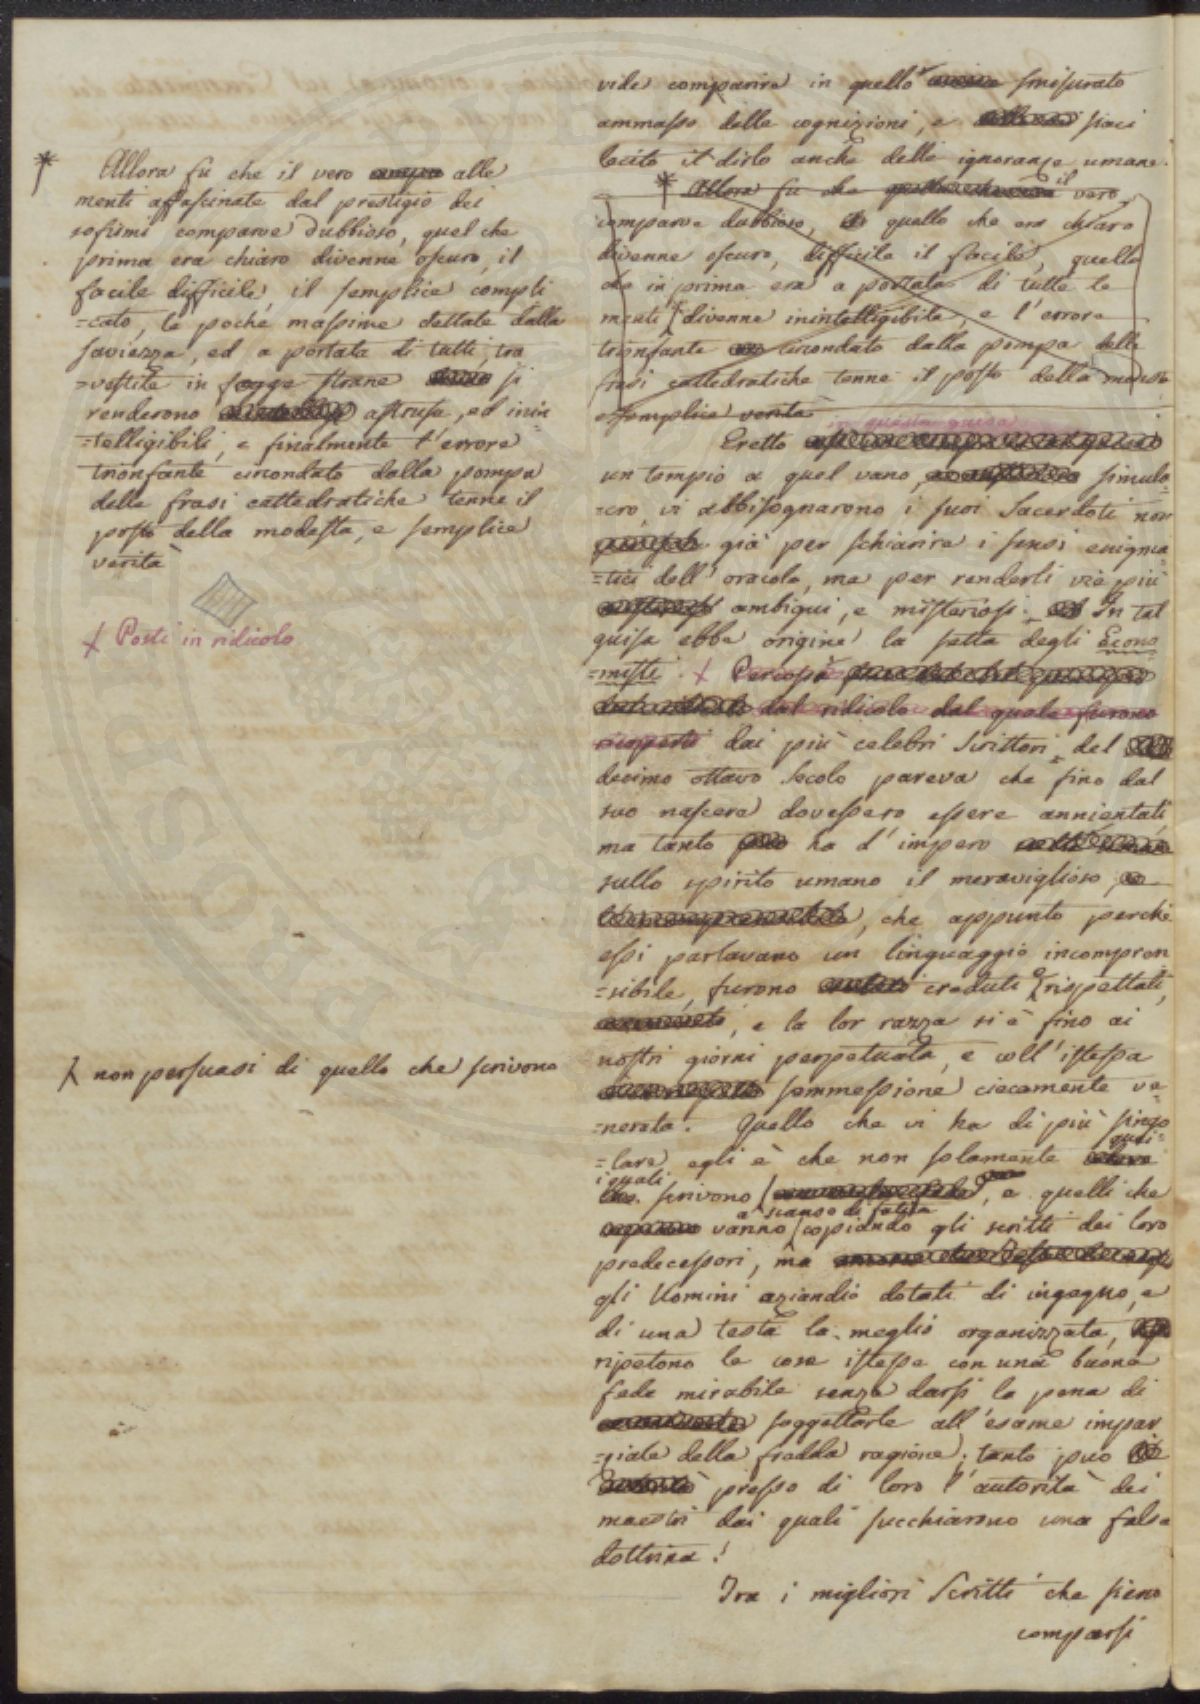 * Allora fu che il vero alle
menti affascinate dal prestigio dei
sofismi comparve dubbioso, quel che
prima era chiaro divenne oscuro, il
facile difficile, il semplice compli
=cato, le poche massime dettate dalla
saviezza, ed a portata di tutti, tra
=vestite in fogge strane si
renderono astruse, ed inin
=telligibili, e finalmente l'errore
trionfante circondato dalla pompa
delle frasi cattedratiche tenne il
posto della modesta, e semplice
verità
+ Posti in ridicolo
non persuasi di quello che scrivono
vide comparire in quello smisurato
ammasso delle cognizioni, e siaci
lecito il dirlo anche delle ignoranze umane.
* Allora fu che il vero
comparve dubbioso, quello che era chiaro
divenne oscuro, difficile il facile, quello
che in prima era a portata di tutte le
menti divenne inintelligibile, e l'errore
trionfante circondato dalla pompa delle
frasi cattedratiche tenne il posto della modesta
e semplice verità
in questa guisa
Eretto
un tempio a quel vano simula
=cro, vi abbisognarono i suoi Sacerdoti non
già per schiarire i sensi enigma
=tici dell'oracolo, ma per renderli vie più
ambigui, e misteriosi. In tal
guisa ebbe origine la setta degli Econo
=misti. +
dal ridicolo dal quale furono
ricoperti dai più celebri Scrittori del
decimo ottavo Secolo pareva che fino dal
suo nascere dovessero essere annientati,
ma tanto ha d'impero
sullo spirito umano il meraviglioso,
che appunto perchè
essi parlavano un linguaggio incompren
=sibile, furono creduti e rispettati,
e la lor razza si è fino ai
nostri giorni perpetuata, e coll'istessa
sommessione ciecamente ve
=nerata. Quello che vi ha di più singo
=lare egli è che non solamente quei
i quali
scrivono, e quelli che
a scanso di fatica
vanno copiando gli scritti dei loro
predecessori, ma
gli Uomini aziandio dotati di ingegno, e
di una testa la meglio organizzata,
ripetono le cose istesse con una buona
fede mirabile senza darsi la pena di
soggettarle all'esame impar
=ziale della fredda ragione; tanto può
presso di loro l'autorità dei
maestri dai quali succhiarono una falsa
dottrina!
Tra i migliori Scritti che sieno
comparsi